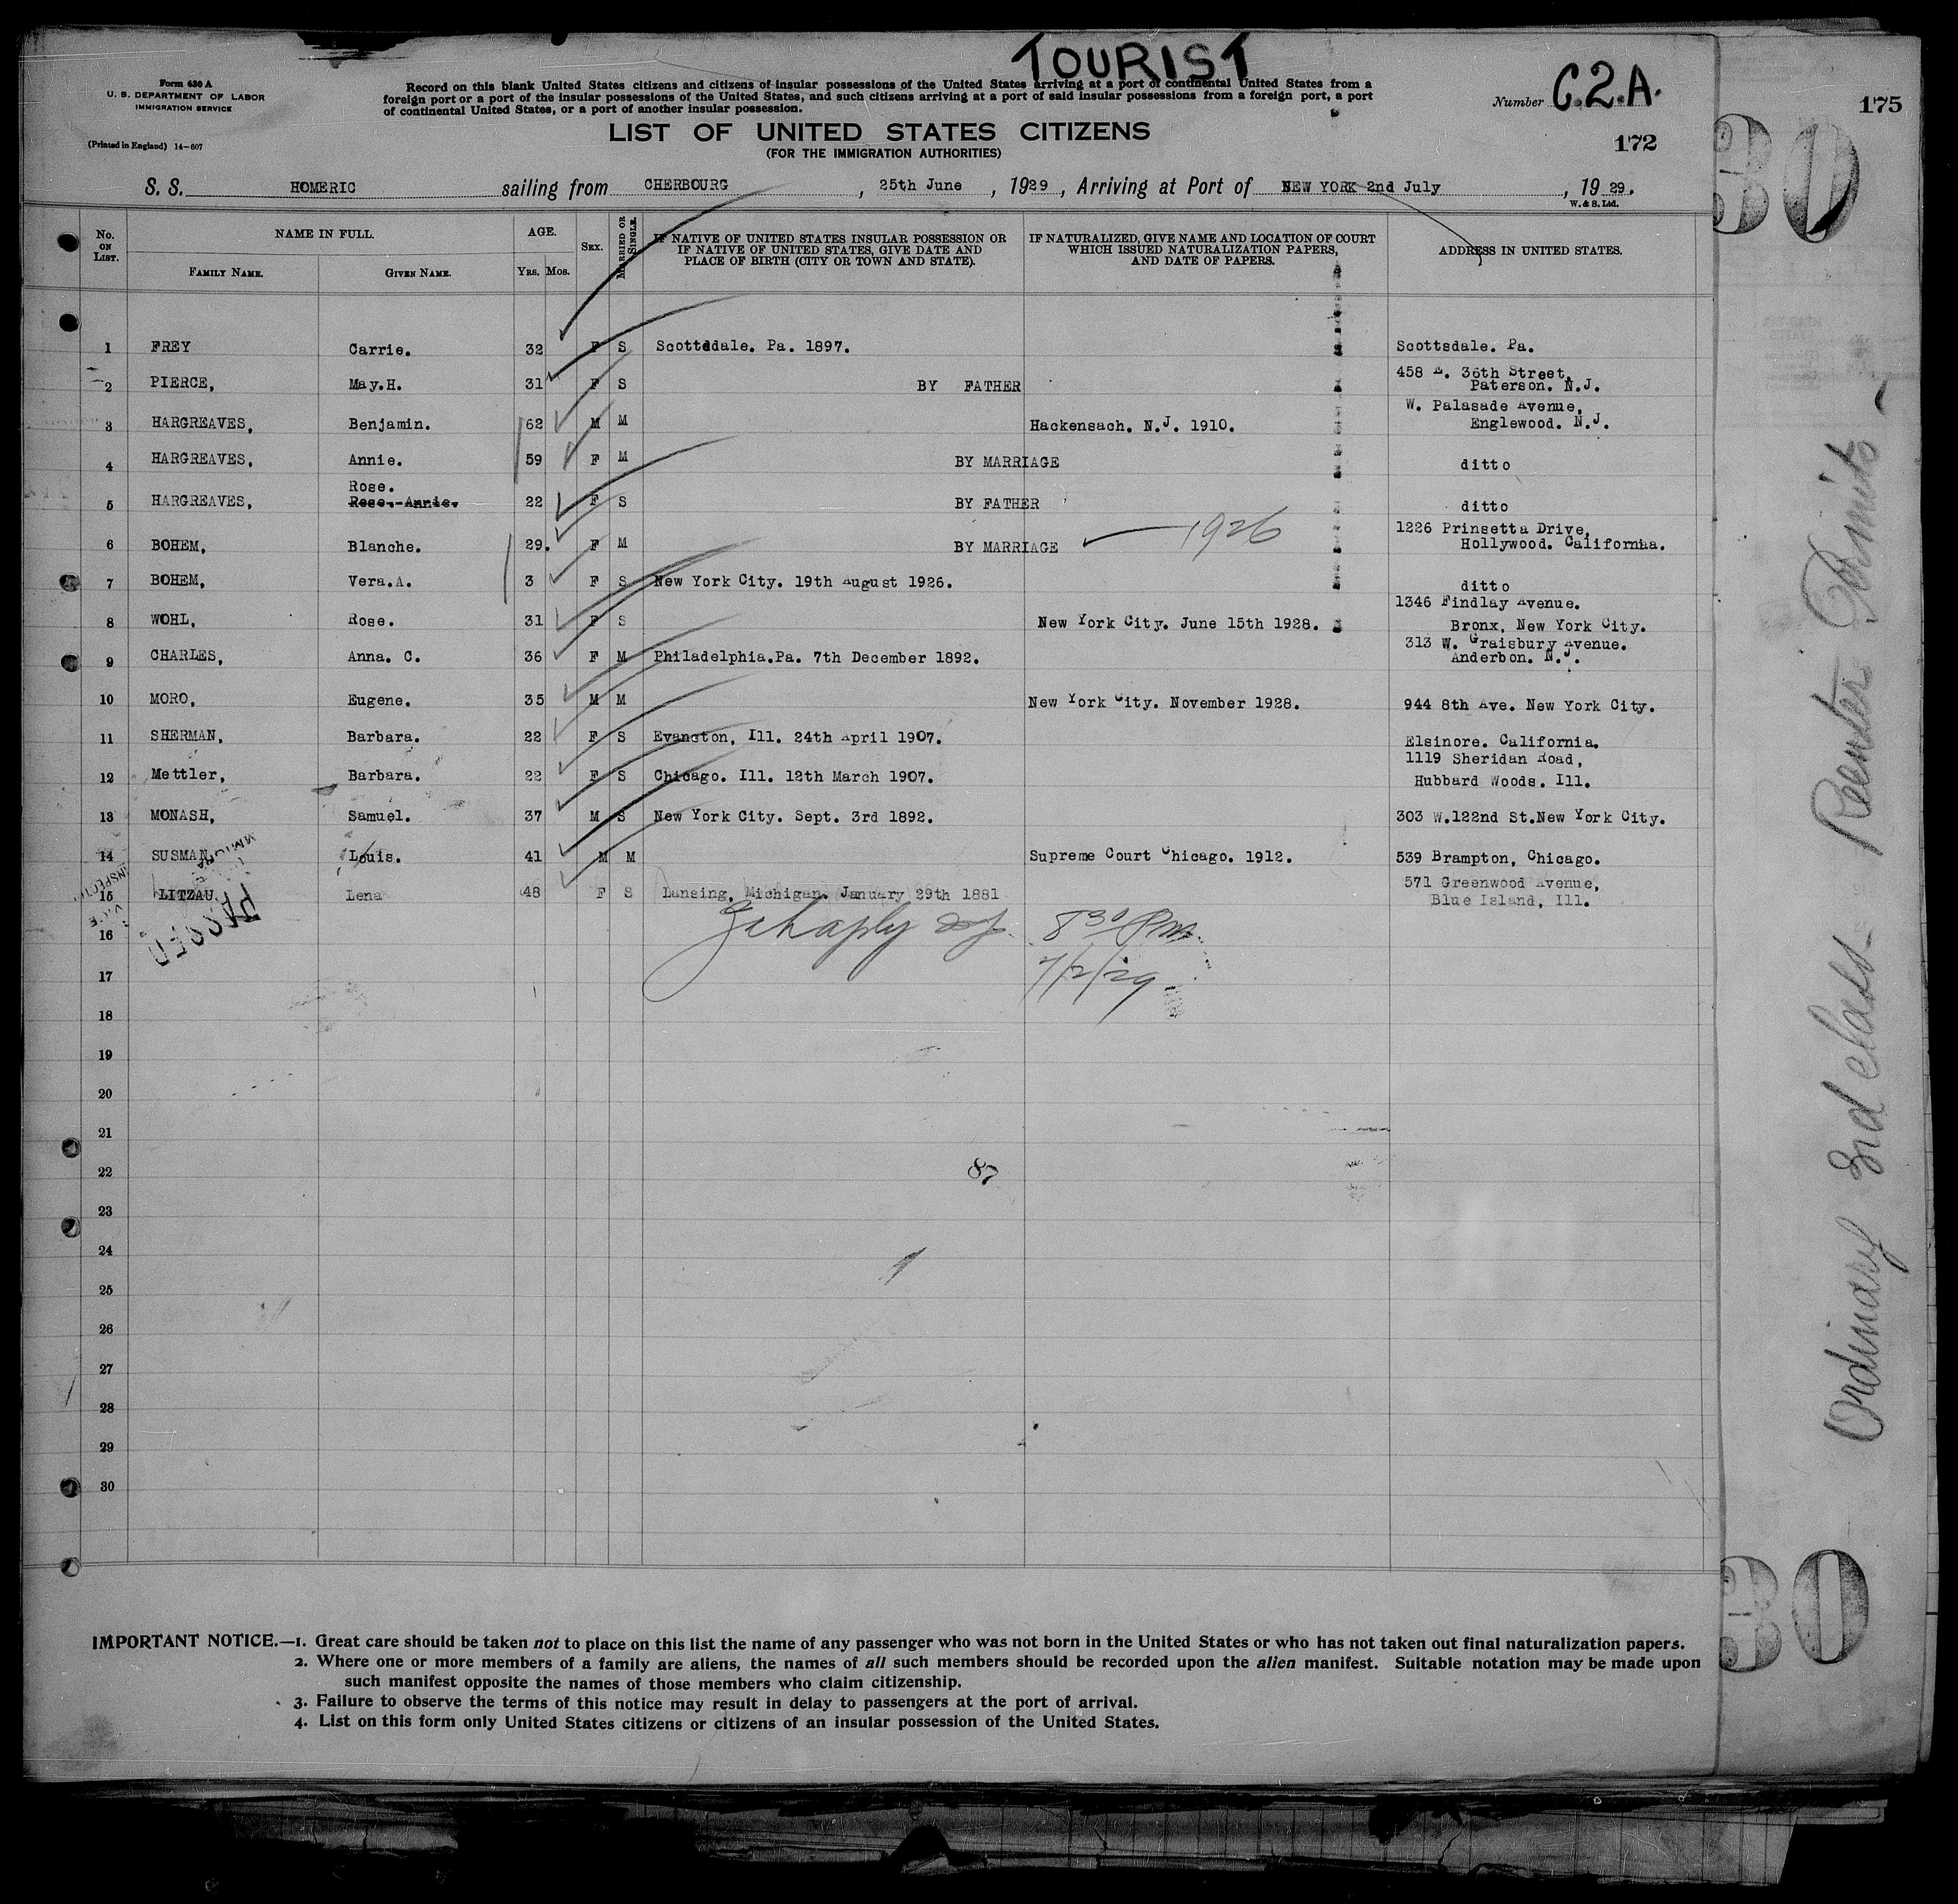 TOURIST
Form 630 A
U. S. DEPARTMENT OF LABOR
IMMIGRATION SERVICE
(Printed in England) 14-607
Record on this blank United States citizens and citizens of insular possessions of the United States arriving at a port of continental United States from a
foreign port or a port of the insular possessions of the United States, and such citizens arriving at a port of said insular possessions from a foreign port, a port
of continental United States, or a port of another insular possession.
Number C.2.A.
175
172
LIST OF UNITED STATES CITIZENS
(FOR THE IMMIGRATION AUTHORITIES)
S. S. HOMERIC sailing from CHERBOURG, 25th June, 1929, Arriving at Port of NEW YORK 2nd July, 1929.
W. & S. Ltd.
No. ON LIST. NAME IN FULL. AGE. SEX. MARRIED OR SINGLE. IF NATIVE OF UNITED STATES INSULAR POSSESSION OR IF NATIVE OF UNITED STATES, GIVE DATE AND PLACE OF BIRTH (CITY OR TOWN AND STATE). IF NATURALIZED, GIVE NAME AND LOCATION OF COURT WHICH ISSUED NATURALIZATION PAPERS, AND DATE OF PAPERS. ADDRESS IN UNITED STATES.
FAMILY NAME. GIVEN NAME. YRS. MOS.
1 FREY Carrie. 32 F S Scottddale. Pa. 1897. Scottsdale. Pa.
2 PIERCE, May.H. 31 F S BY FATHER 458 E. 36th Street, Paterson. N.J.
3 HARGREAVES, Benjamin. 62 M M Hackensach. N.J. 1910. W. Palasade Avenue, Englewood. N.J.
4 HARGREAVES, Annie. 59 F M BY MARRIAGE ditto
Rose.
5 HARGREAVES, Rose.-Annie. 22 F S BY FATHER ditto
6 BOHEM, Blanche. 29. F M BY MARRIAGE 1926 1226 Prinsetta Drive, Hollywood. California.
7 BOHEM, Vera.A. 3 F S New York City. 19th August 1926. ditto
8 WOHL, Rose. 31 F S New York City. June 15th 1928. 1346 Findlay Avenue. Bronx, New York City.
9 CHARLES, Anna. C. 36 F M Philadelphia.Pa. 7th December 1892. 313 W. Graisbury Avenue. Anderbon. N.J.
10 MORO, Eugene. 35 M M New York City. November 1928. 944 8th Ave. New York City.
11 SHERMAN, Barbara. 22 F S Evanston, Ill. 24th April 1907. Elsinore. California.
12 Mettler, Barbara. 22 F S Chicago. Ill. 12th March 1907. 1119 Sheridan Road, Hubbard Woods. Ill.
13 MONASH, Samuel. 37 M S New York City. Sept. 3rd 1892. 303 W.122nd St.New York City.
14 SUSMAN, Louis. 41 M M Supreme Court Chicago. 1912. 539 Brampton, Chicago.
15 LITZAU Lena 48 F S Lansing, Michigan. January 29th 1881 571 Greenwood Avenue, Blue Island, Ill.
PASSED
16 8 30 Pm
17 7/2/29
18
19
20
21
22 87
23
24
25
26
27
28
29
30
IMPORTANT NOTICE.—1. Great care should be taken not to place on this list the name of any passenger who was not born in the United States or who has not taken out final naturalization papers.
2. Where one or more members of a family are aliens, the names of all such members should be recorded upon the alien manifest. Suitable notation may be made upon
such manifest opposite the names of those members who claim citizenship.
3. Failure to observe the terms of this notice may result in delay to passengers at the port of arrival.
4. List on this form only United States citizens or citizens of an insular possession of the United States.
30
Ordinary 2nd Class - Reenter Permits -
30